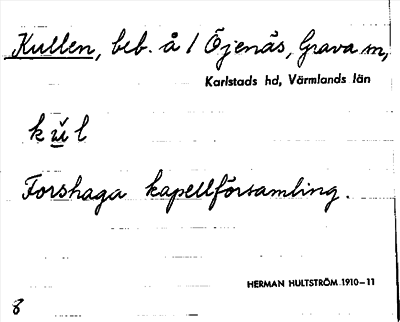 Kullen, beb. å 1 Öjenäs, Grava sn,
Karlstads hd, Värmlands län
kŭl
Forshaga kapellförsamling.
HERMAN HULTSTRÖM 1910-11
8